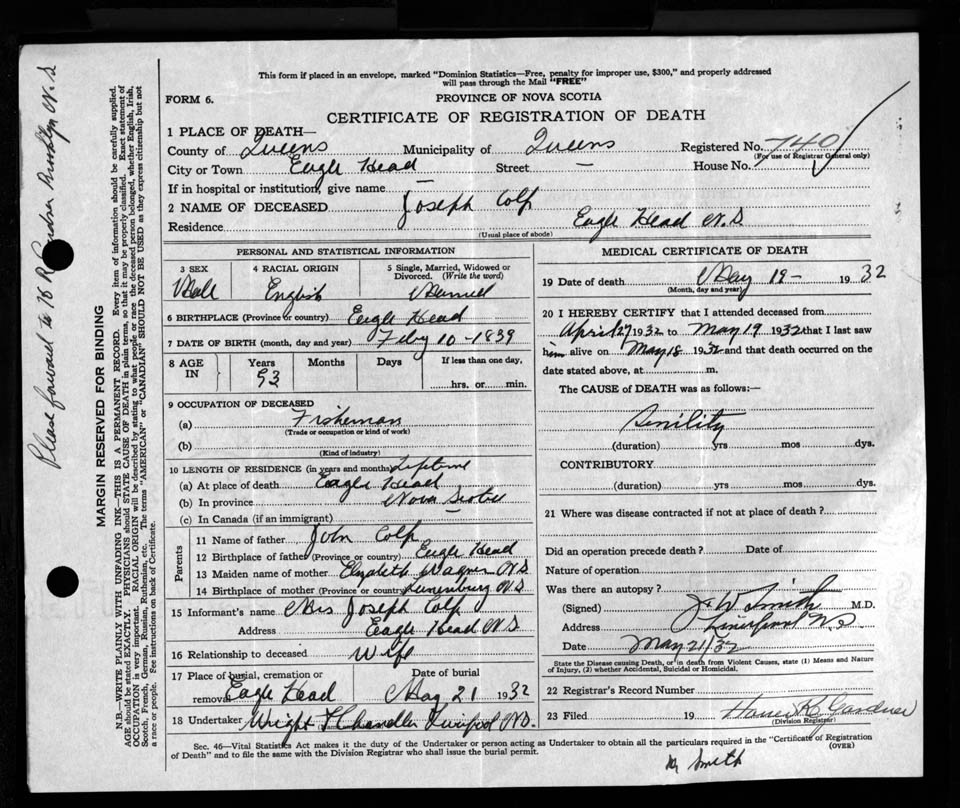 This form if placed in an envelope, marked "Dominion Statistics—Free, penalty for improper use, $300," and properly addressed
will pass through the Mail "FREE"
FORM 6.
PROVINCE OF NOVA SCOTIA
CERTIFICATE OF REGISTRATION OF DEATH
1 PLACE OF DEATH—
County of Queens Municipality of Queens Registered No. 740
(For use of Registrar General only)
City or Town Eagle Head Street — House No.
If in hospital or institution, give name —
2 NAME OF DECEASED Joseph Colp
Residence Eagle Head N.S
(Usual place of abode)
PERSONAL AND STATISTICAL INFORMATION
3 SEX
Male
4 RACIAL ORIGIN
English
5 Single, Married, Widowed or
Divorced. (Write the word)
Married
6 BIRTHPLACE (Province or country) Eagle Head
7 DATE OF BIRTH (month, day and year) Feby 10-1839
8 AGE
IN
Years
93
Months
Days
If less than one day,
hrs. or min.
9 OCCUPATION OF DECEASED
(a) Fisherman
(Trade or occupation or kind of work)
(b)
(Kind of industry)
10 LENGTH OF RESIDENCE (in years and months) Lifetime
(a) At place of death Eagle Head
(b) In province Nova Scotia
(c) In Canada (if an immigrant) —
Parents
11 Name of father John Colp
12 Birthplace of father (Province or country) Eagle Head
13 Maiden name of mother Elizabeth Wagner N.S
14 Birthplace of mother (Province or country) Lunenburg N.S
15 Informant's name Mrs Joseph Colp
Address Eagle Head N.S
16 Relationship to deceased Wife
17 Place of burial, cremation or
removal Eagle Head
Date of burial
May 21 1932
18 Undertaker Wright Chandler Liverpool N.S.
MEDICAL CERTIFICATE OF DEATH
19 Date of death May 19— 1932
(Month, day and year)
20 I HEREBY CERTIFY that I attended deceased from
April 27 1932 to May 19 1932 that I last saw
him alive on May 18 1932 and that death occurred on the
date stated above, at m.
The CAUSE of DEATH was as follows:—
Senility
(duration) yrs mos dys.
CONTRIBUTORY
(duration) yrs mos dys.
21 Where was disease contracted if not at place of death?
Did an operation precede death? Date of
Nature of operation
Was there an autopsy?
(Signed) J W Smith M.D.
Address Liverpool N.S.
Date May 21/32
State the Disease causing Death, or in death from Violent Causes, state (1) Means and Nature
of Injury, (2) whether Accidental, Suicidal or Homicidal.
22 Registrar's Record Number
23 Filed 19 Homer R. Gardner
(Division Registrar)
Sec. 46—Vital Statistics Act makes it the duty of the Undertaker or person acting as Undertaker to obtain all the particulars required in the "Certificate of Registration
of Death" and to file the same with the Division Registrar who shall issue the burial permit.
(OVER)
Smith
Please forward to H R Gardner Brooklyn N.S
MARGIN RESERVED FOR BINDING
N.B.—WRITE PLAINLY WITH UNFADING INK—THIS IS A PERMANENT RECORD. Every item of information should be carefully supplied.
AGE should be stated EXACTLY. PHYSICIANS should STATE CAUSE OF DEATH in plain terms, so that it may be properly classified. Exact statement of
OCCUPATION is very important. RACIAL ORIGIN will be described by stating to what people or race the deceased person belonged, whether English, Irish,
Scotch, French, German, Russian, Ruthenian, etc. The terms "AMERICAN" or "CANADIAN" SHOULD NOT BE USED as they express citizenship but not
a race or people. See instructions on back of Certificate.